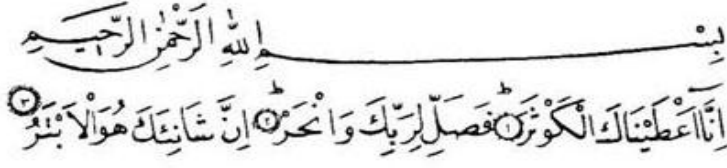 بِسْمِ اللهِ الرَّحْمٰنِ الرَّحِيمِ
اِنَّٓا اَعْطَيْنَاكَ الْكَوْثَرَۜ ﴿١﴾ فَصَلِّ لِرَبِّكَ وَانْحَرْۜ ﴿٢﴾ اِنَّ شَانِئَكَ هُوَ الْاَبْتَرُ ﴿٣﴾